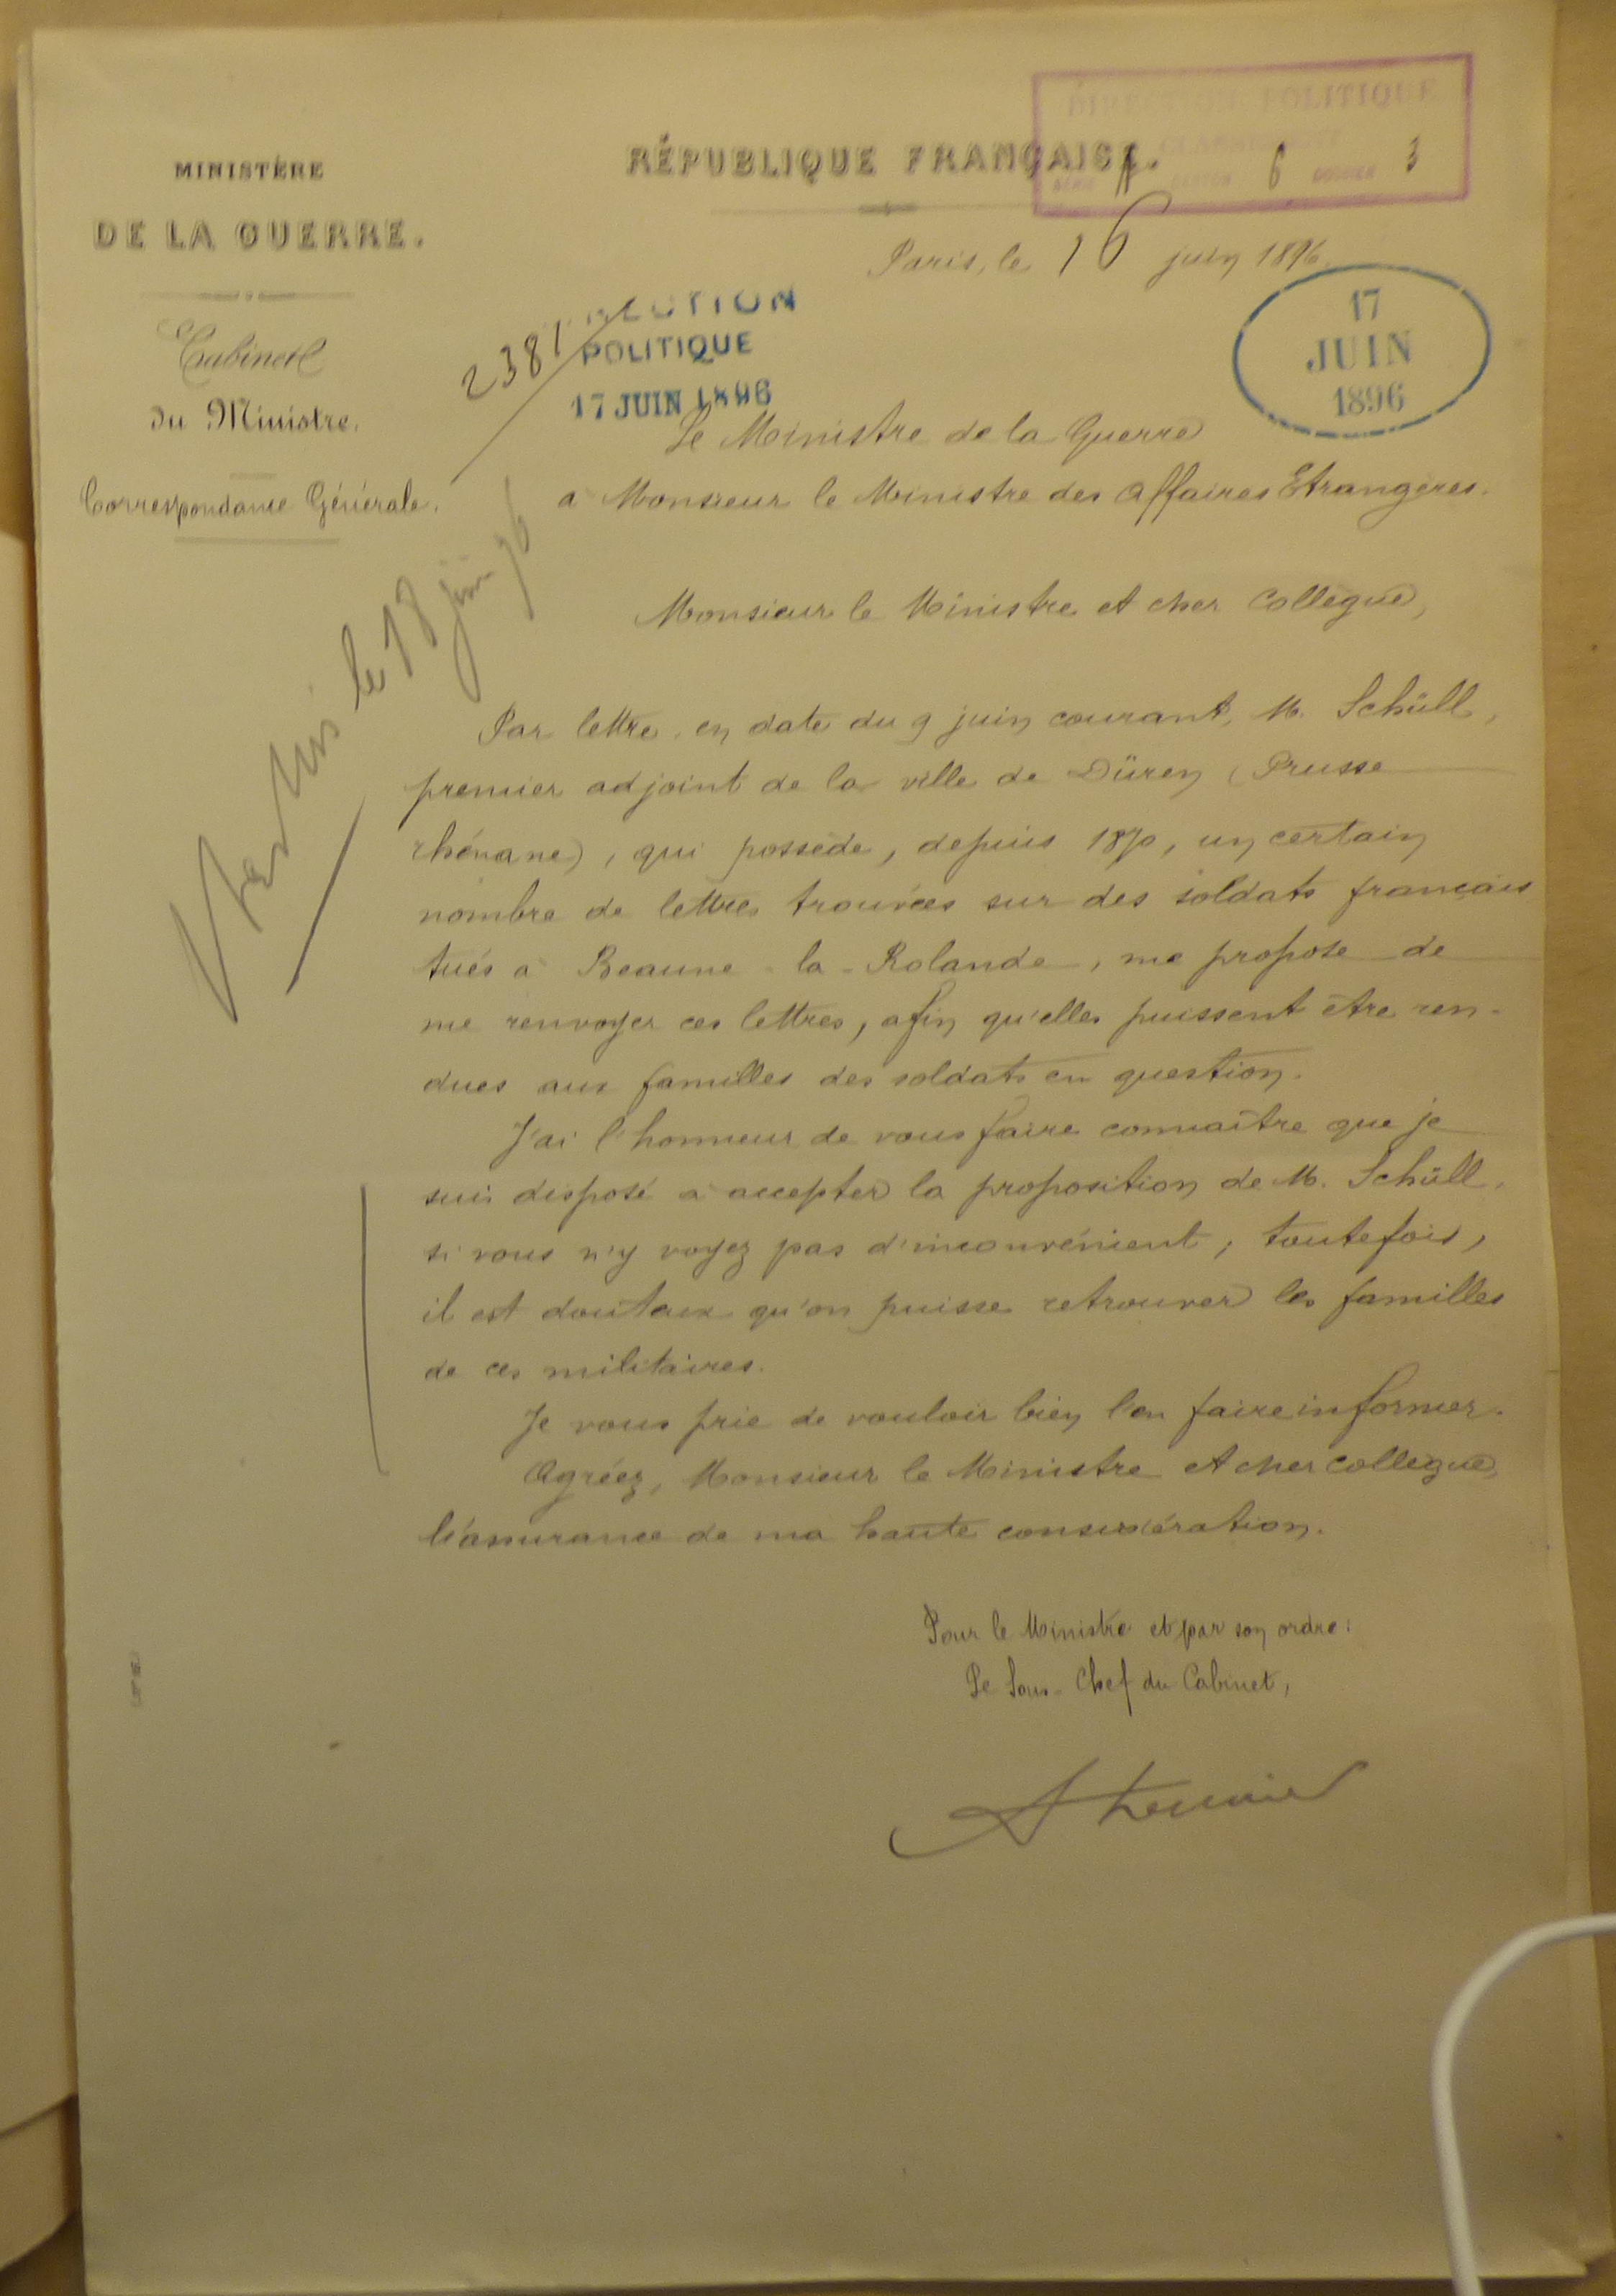 MINISTÈRE
DE LA GUERRE.
Cabinet
du Ministre.
Correspondance Générale.
RÉPUBLIQUE FRANÇAISE.
DIRECTION POLITIQUE
CLASSEMENT
SÉRIE A CARTON 6 DOSSIER 3
Paris, le 16 juin 1896.
17
JUIN
1896
2381
DIRECTION
POLITIQUE
17 JUIN 1896
Le Ministre de la Guerre
a Monsieur le Ministre des Affaires Etrangères.
le 18 juin 96
Monsieur le Ministre et cher Collègue,
Par lettre en date du 9 juin courant, M. Schüll,
premier adjoint de la ville de Düren (Prusse
rhénane), qui possède, depuis 1870, un certain
nombre de lettres trouvées sur des soldats français
tués a Beaune-la-Rolande, me propose de
me renvoyer ces lettres, afin qu'elles puissent être ren-
dues aux familles des soldats en question.
J'ai l'honneur de vous faire connaître que je
suis disposé a accepter la proposition de M. Schüll,
si vous n'y voyez pas d'inconvénient; toutefois,
il est douteux qu'on puisse retrouver les familles
de ces militaires.
Je vous prie de vouloir bien l'en faire informer.
Agréez, Monsieur le Ministre et cher Collègue,
l'assurance de ma haute considération.
Pour le Ministre et par son ordre:
Le Sous-Chef du Cabinet,